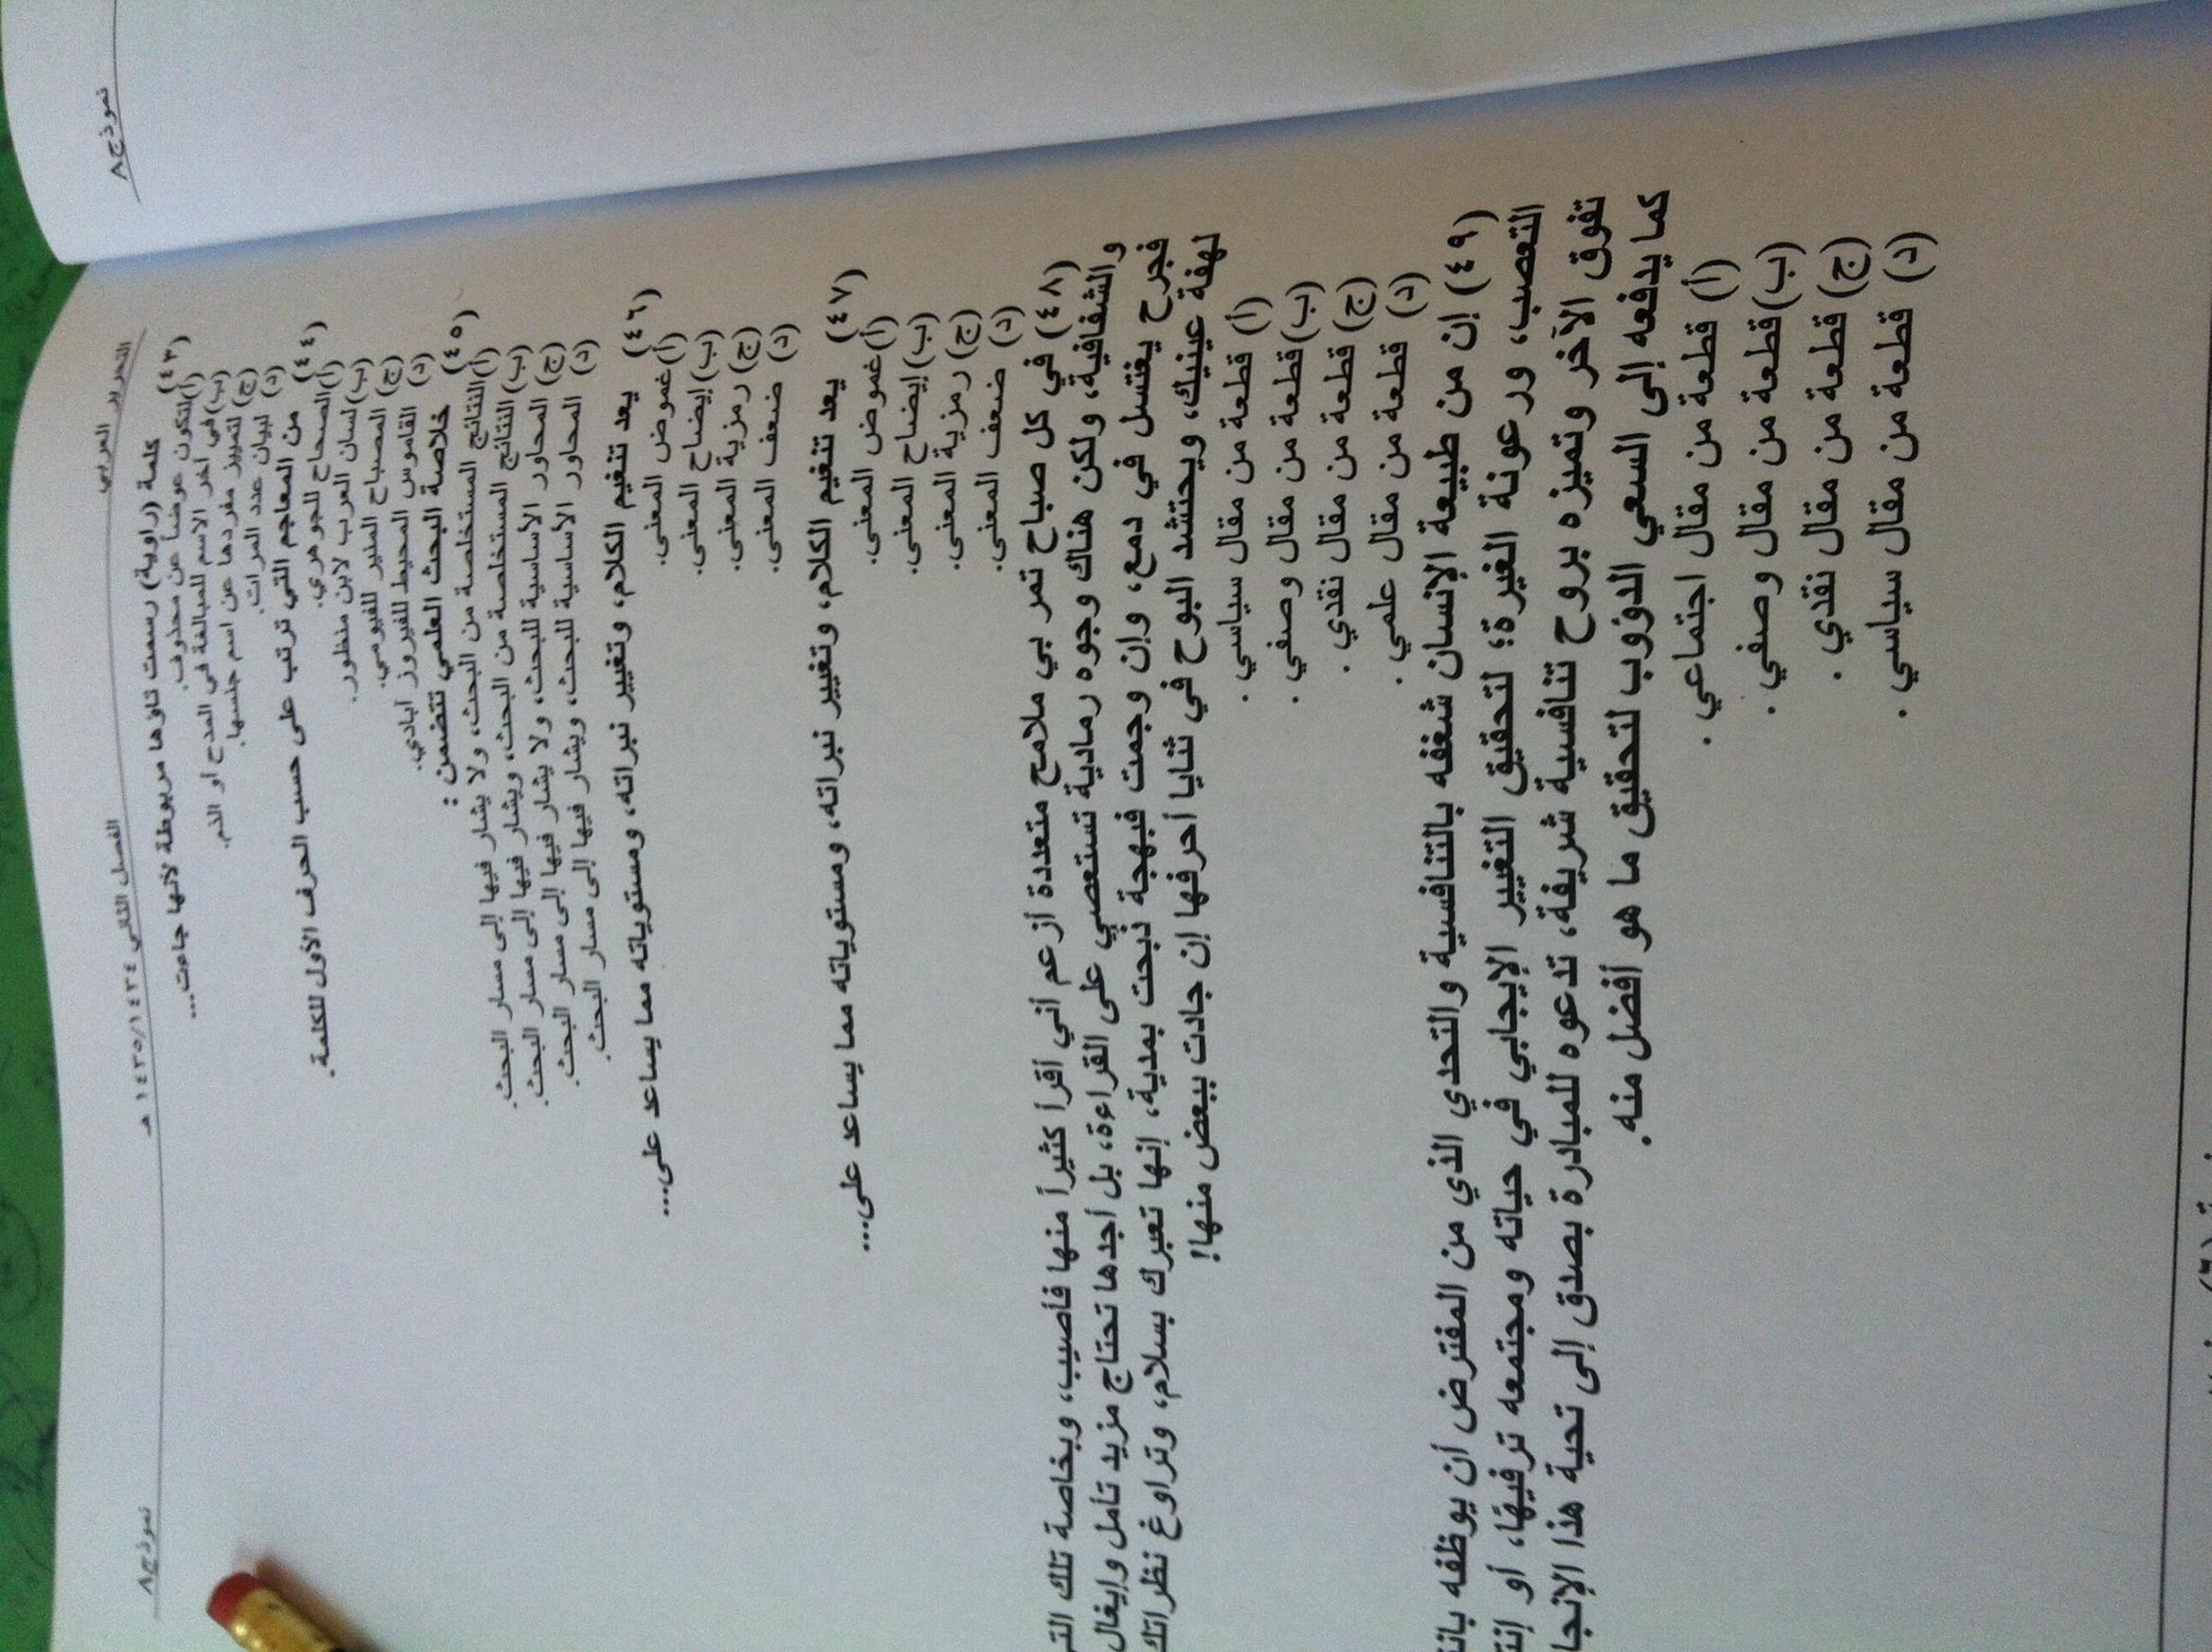 نموذج٨
التحرير العربي
الفصل الثاني ١٤٣٤/١٤٣٥ هـ
نموذج٨
(٤٣) كلمة (راوية) رسمت تاؤها مربوطة لأنها جاءت...
(أ)لتكون عوضاً عن محذوف.
(ب)في آخر الاسم للمبالغة في المدح أو الذم.
(ج) لتمييز مفردها عن اسم جنسها.
(د) لبيان عدد المرات.
(٤٤) من المعاجم التي ترتب على حسب الحرف الأول للكلمة.
(أ)الصحاح للجوهري.
(ب)لسان العرب لابن منظور.
(ج) المصباح المنير للفيومي.
(د) القاموس المحيط للفيروز آبادي.
(٤٥) خلاصة البحث العلمي تتضمن :
(أ)النتائج المستخلصة من البحث، ولا يشار فيها إلى مسار البحث.
(ب)النتائج المستخلصة من البحث، ويشار فيها إلى مسار البحث.
(ج) المحاور الأساسية للبحث، ولا يشار فيها إلى مسار البحث.
(د) المحاور الأساسية للبحث، ويشار فيها إلى مسار البحث.
(٤٦) يعد تنغيم الكلام، وتغيير نبراته، ومستوياته مما يساعد على...
(أ)غموض المعنى.
(ب)إيضاح المعنى.
(ج) رمزية المعنى.
(د) ضعف المعنى.
(٤٧) يعد تنغيم الكلام، وتغيير نبراته، ومستوياته مما يساعد على...
(أ)غموض المعنى.
(ب)إيضاح المعنى.
(ج) رمزية المعنى.
(د) ضعف المعنى.
(٤٨) في كل صباح تمر بي ملامح متعددة أزعم أني أقرأ كثيراً منها فأصيب، وبخاصة تلك
والشفافية، ولكن هناك وجوه رمادية تستعصي على القراءة، بل أجدها تحتاج مزيد تأمل وإيغال
فجرح يغتسل في دمع، وإن وجمت فبهجة ذبحت بمدية، إنها تعبرك بسلام، وتراوغ نظراتك
لهفة عينيك، ويحتشد البوح في ثنايا أحرفها إن جادت ببعض منها!
(أ) قطعة من مقال سياسي .
(ب)قطعة من مقال وصفي .
(ج) قطعة من مقال نقدي .
(د) قطعة من مقال علمي .
(٤٩) إن من طبيعة الإنسان شغفه بالتنافسية والتحدي الذي من المفترض أن يوظفه
التعصب، ورعونة الغيرة؛ لتحقيق التغيير الإيجابي في حياته ومجتمعه ترفيهًا، أو
تفوق الآخر وتميزه بروح تنافسية شريفة، تدعوه للمبادرة بصدق إلى تحية هذا
كما يدفعه إلى السعي الدؤوب لتحقيق ما هو أفضل منه.
(أ) قطعة من مقال اجتماعي .
(ب)قطعة من مقال وصفي .
(ج) قطعة من مقال نقدي .
(د) قطعة من مقال سياسي .